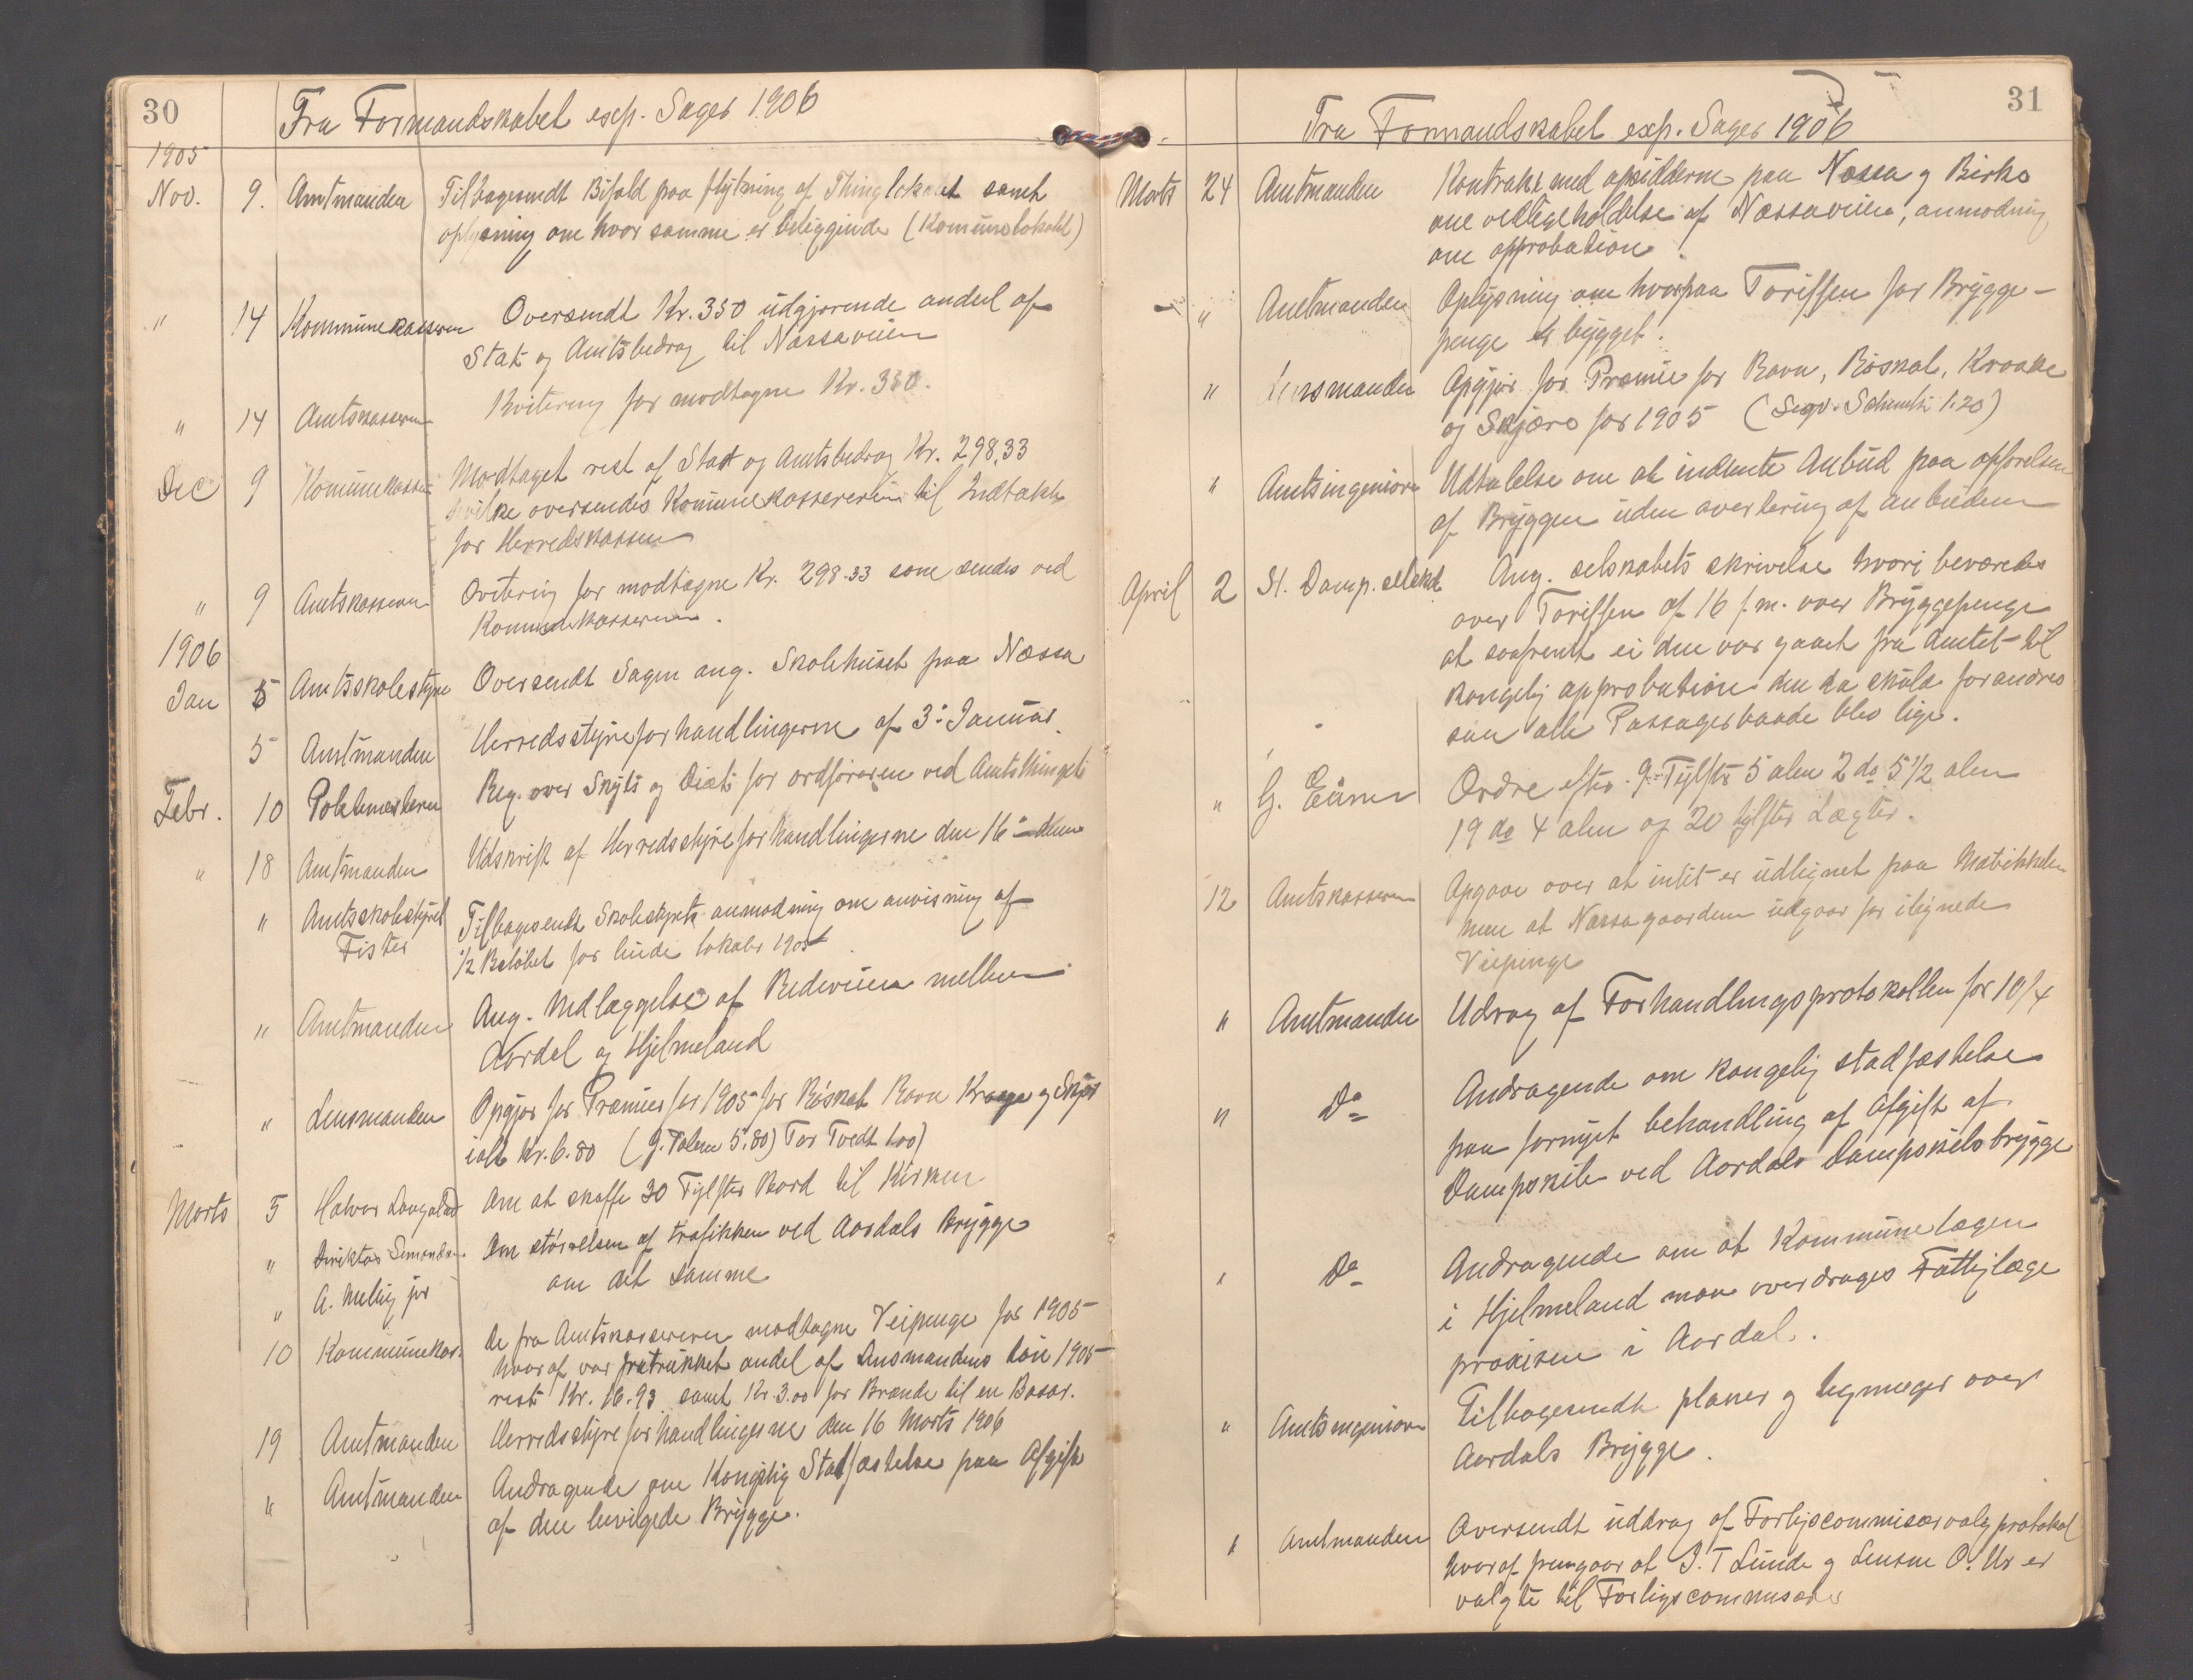 30
Fra Formandskabet exp. Sager 1906
1905
Nov. 9. Amtmanden Tilbagesendt Bifald paa flytning af Thinglokalet samt
oplysning om hvor samme er beliggende (Komunelokalet)
" 14 Kommunekasseren Oversendt Kr. 350 udgjørende andel af
Stats og Amtsbidrag til Næssaveien
" 14 Amtskasseren Kvitering for modtagne Kr. 350.
Dec 9 Komunekasse Modtaget rest af Stat og Amtsbidrag Kr. 298,33
hvilke oversendes Komunekassereren til Indtækt
for Herredskassen
" 9 Amtskasseren Qvitering for modtagne Kr. 298.33 som sendes ved
Komunekassereren.
1906
Jan 5 Amtsskolestyre Oversendt Sagen ang. Skolehuset paa Næssa
5 Amtmanden Herredsstyreforhandlingerne af 3. Januar.
Febr. 10 Politimesteren Reg. over Skyts og Diæt for ordføreren ved Amtsthinget
" 18 Amtmanden Udskrift af Herredsstyreforhandlingerne den 16 dem
" Amtsskolestyret Tilbagesendt Skolestyrets anmodning om anvisning af
Fister 1/2 Beløbet for leiede lokaler 1905
" Amtmanden Ang. Nedlæggelse af Rideveien mellem
Aardal og Hjelmeland
" Lensmanden Opgjør for Præmier for 1905 for Røskat Ravn Kraage og Skjør
ialt Kr. 6.80 (G. Valem 5.80) Tor Tvedt 1.00)
Marts 5 Halvor Langeland Om at skaffe 30 Tylfter Bord til Kirken
" Direktør Simonsen Om størrelsen af trafikken ved Aardals Brygge
" A. Melbÿ jor om det samme
10 Kommunekas. De fra Amtskassereren modtagne Veipenge for 1905
hvoraf var fratrukket andel af Lensmandens løn 1905
rest Kr. 16.93 samt Kr. 3.00 for Brænde til en Basar.
19 Amtmanden Herredsstyreforhandlingerne den 16 Marts 1906
" Amtmanden Andragende om Kongelig Stadfæstelse paa Afgift
af den bevilgede Brygge.
31
Fra Formandskabet exp. Sager 1906
Marts 24 Amtmanden Kontrakt med opsidderne paa Næssa og Birke
om vedligeholdelse af Næssaveien, anmodning
om approbation
" Amtmanden Oplysning om hvorpaa Tariffen for Brygge-
penge er bygget.
" Lensmanden Opgjør for Præmie for Ravn, Røskat, Kraake
og Skjære for 1905 ( 1.20)
" Amtsingeniøren Udtalelse om at indhente Anbud paa opførelsen
af Bryggen uden avertering af anbudene
April 2 St. Damp. selskab Ang. selskabets skrivelse hvori besværedes
over Tariffen af 16 f.m. over Bryggepenge
at saafremt ei den var gaaet fra Amtet til
kongelig approbation den da skulde forandres
saa alle Passagerbaade blev lige.
" G. Ordre efter 9 Tylfter 5 alen 2 do 5 1/2 alen
19 do 4 alen og 20 tylfter Lægter.
12 Amtskasseren Opgave over at intet er udlignet paa Matrikkelen
men at Næssagaardene udgaar for ilignede
Veipenge
" Amtmanden Udrag af Forhandlingsprotokollen for 10/4
" Do Andragende om kongelig stadfæstelse
paa fornyet behandling af Afgift af
Dampskibe ved Aardals Dampskibsbrygge
" Do Andragende om at Kommunelægen
i Hjelmeland maa overdrages Fattiglæge
praxisen i Aardal.
" Amtsingeniøren Tilbagesendt planer og tegninger over
Aardals Brygge.
" Amtmanden Oversendt uddrag af Forligscommisærvalgprotokol
hvoraf fremgaar at J. T Lunde og Lensm O. Ur er
valgte til Forligscommisærer